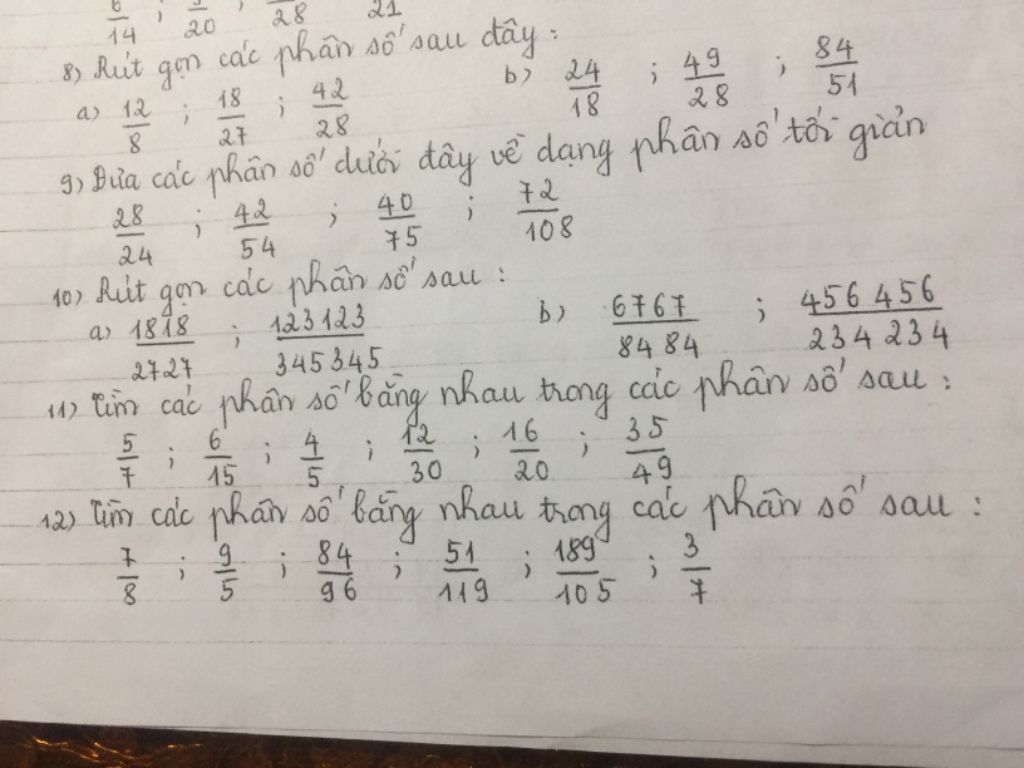 6/14 ; /20 ; /28 21
8) Rút gọn các phân số sau đây :
a) 12/8 ; 18/27 ; 42/28 b) 24/18 ; 49/28 ; 84/51
9) Đưa các phân số dưới đây về dạng phân số tối giản
28/24 ; 42/54 ; 40/75 ; 72/108
10) Rút gọn các phân số sau :
a) 1818/2727 ; 123123/345345 b) 6767/8484 ; 456 456/234 234
11) Tìm các phân số bằng nhau trong các phân số sau :
5/7 ; 6/15 ; 4/5 ; 12/30 ; 16/20 ; 35/49
12) Tìm các phân số bằng nhau trong các phân số sau :
7/8 ; 9/5 ; 84/96 ; 51/119 ; 189/105 ; 3/7